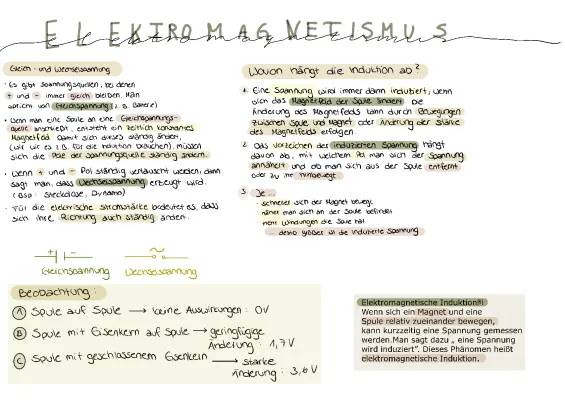 ELEKTROMAGNETISMUS
Gleich- und Wechselspannung
· Es gibt Spannungsquellen, bei denen
+ und - immer gleich bleiben. Man
spricht von Gleichspannung (z. B Baterie)
· Wenn man eine Spule an eine Gleichspannungs-
quelle anschließt, entsteht ein zeitlich konstantes
Magnetfeld. Damit sich dieses ständig ändert,
(wie wir es z.B. für die Induktion brauchen), müssen
sich die Pole der Spannungsquelle ständig ändern.
· Wenn + und - Pol ständig vertauscht werden, dann
sagt man, dass Wechselspannung erzeugt wird.
(Bsp: Steckdose, Dynamo)
· Für die elektrische Stromstärke bedeutet es, dass
sich ihre Richtung auch ständig ändert.
+ -
Gleichspannung Wechselspannung
Wovon hängt die Induktion ab?
1. Eine Spannung wird immer dann induziert, wenn
sich das Magnetfeld der Spule ändert. Die
Änderung des Magnetfelds kann durch Bewegungen
zwischen Spule und Magnet oder Änderung der Stärke
des Magnetfelds erfolgen.
2. Das Vorzeichen der induzierten Spannung hängt
davon ab, mit welchem Pol man sich der Spannung
annähert und ob man sich aus der Spule entfernt
oder zu ihr hinbewegt.
3. Je...
- schneller sich der Magnet bewegt
- näher man sich an der Spule befindet
- mehr Windungen die Spule hat
... desto größer ist die induzierte Spannung.
Beobachtung:
A Spule auf Spule → keine Auswirkungen: 0V
B Spule mit Eisenkern auf Spule → geringfügige
Änderung: 1,7V
C Spule mit geschlossenem Eisenkern → starke
Änderung: 3,6V
Elektromagnetische Induktion
Wenn sich ein Magnet und eine
Spule relativ zueinander bewegen,
kann kurzzeitig eine Spannung gemessen
werden.Man sagt dazu „ eine Spannung
wird induziert". Dieses Phänomen heißt
elektromagnetische Induktion.